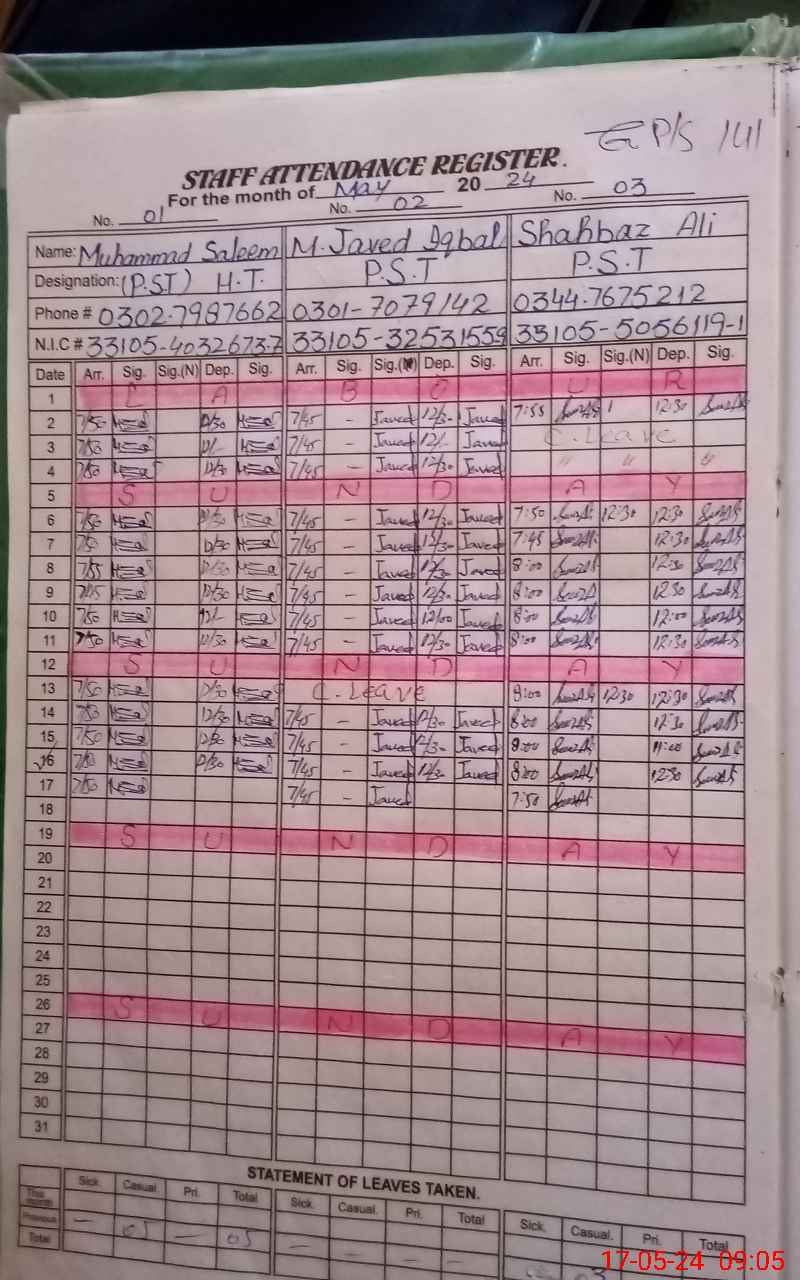 G P/S 141
STAFF ATTENDANCE REGISTER.
For the month of May 2024
No. 01 No. 02 No. 03
Name: Muhammad Saleem M. Javed Iqbal Shahbaz Ali
Designation: (P.ST) H.T. P.S.T P.S.T
Phone # 0302-7987662 0301-7079142 0344-7675212
N.I.C # 33105-4032673-7 33105-32531559 33105-5056119-1
Date Arr. Sig. Sig.(N) Dep. Sig. Arr. Sig. Sig.(N) Dep. Sig. Arr. Sig. Sig.(N) Dep. Sig.
1 L A B O U R
2 7/50 12/30 7/45 - Javed 12/30 Javed 7:55 12:30
3 7/50 12/- 7/45 - Javed 12/- Javed C. Leave
4 7/50 12/30 7/45 - Javed 12/30 Javed " " "
5 S U N D A Y
6 7/50 12/30 7/45 - Javed 12/30 Javed 7:50 12:30 12:30
7 7/50 12/30 7/45 - Javed 12/30 Javed 7:45 12:30
8 7/55 12/30 7/45 - Javed 12/30 Javed 8:00 12:30
9 12/30 7/45 - Javed 12/30 Javed 8:00 12:30
10 7/50 12/- 7/45 - Javed 12/00 Javed 8:00 12:00
11 7/50 12/30 7/45 - Javed 12/30 Javed 8:00 12:30
12 S U N D A Y
13 7/50 12/30 C. Leave 8:00 12:30 12:30
14 7/50 12/30 7/45 - Javed 12/30 Javed 8:00 12:30
15 7/50 12/30 7/45 - Javed 12/30 Javed 8:00 11:00
16 7/50 12/30 7/45 - Javed 12/30 Javed 8:00 12:30
17 7/50 7/45 - Javed 7:50
18
19 S U N D A Y
20
21
22
23
24
25
26 S U N D A Y
27
28
29
30
31
STATEMENT OF LEAVES TAKEN.
Sick. Casual. Pri. Total Sick. Casual. Pri. Total Sick. Casual. Pri. Total
This month
Previous - 05 - 05 - - - -
Total 03
17-05-24 09:05